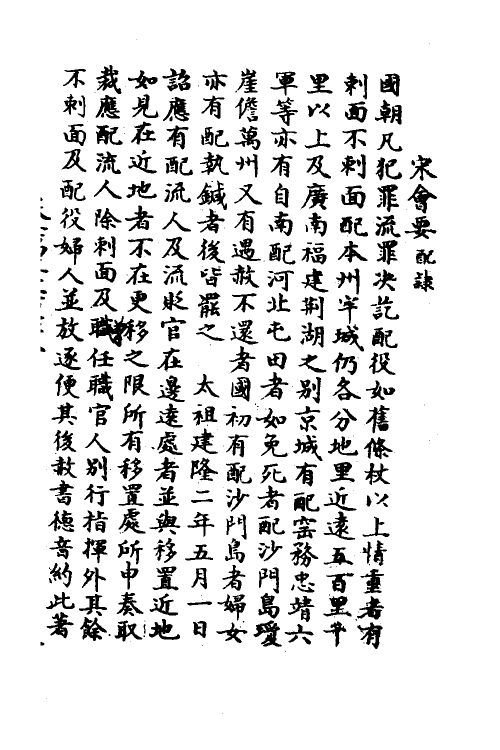 宋會要 配隸
國朝凡犯罪流罪決訖配役如舊條杖以上情重者有
刺面不刺面配本州牢城仍各分地里近遠五百里千
里以上及廣南福建荆湖之別京城有配窑務忠靖六
軍等亦有自南配河北屯田者如免死者配沙門島瓊
崖儋萬州又有遇赦不還者國初有配沙門島者婦女
亦有配執鍼者後皆罷之 太祖建隆二年五月一日
詔應有配流人及流貶官在邊遠處者並與移置近地
如見在近地者不在更移之限所有移置處所申奏取
裁應配流人除刺面及職任職官人別行指揮外其餘
不刺面及配役婦人並放逐便其後赦書德音約此著